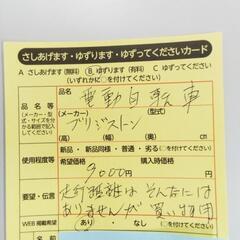 さしあげます・ゆずります・ゆずってくださいカード
A さしあげます（無料） Ⓑ ゆずります（有料） C ゆずって下さい
（いずれかに○を付けてください）
品名等
（メーカー・型式・サイズを分かる範囲で記入してください）
品名
電動自転車
（メーカー） （型式）
ブリジストン
（高） （幅） （奥） cm
使用程度等
新品・新品同様・普通・劣る（○を付けてください）
希望価格 購入時価格
9000円
要望・伝言
走行距離はそんなには
ありませんが買います用
WEB掲載希望
あり・なし（○を付けてください）